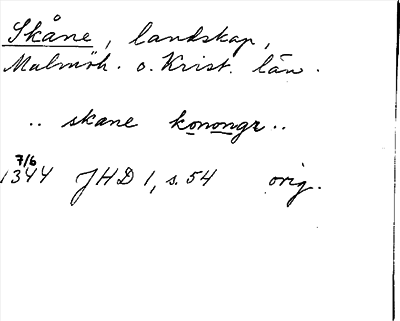 Skåne, landskap,
Malmöh. o. Krist. län.
.. skane konongr ..
7/6
1344 JHD 1, s. 54 orig.